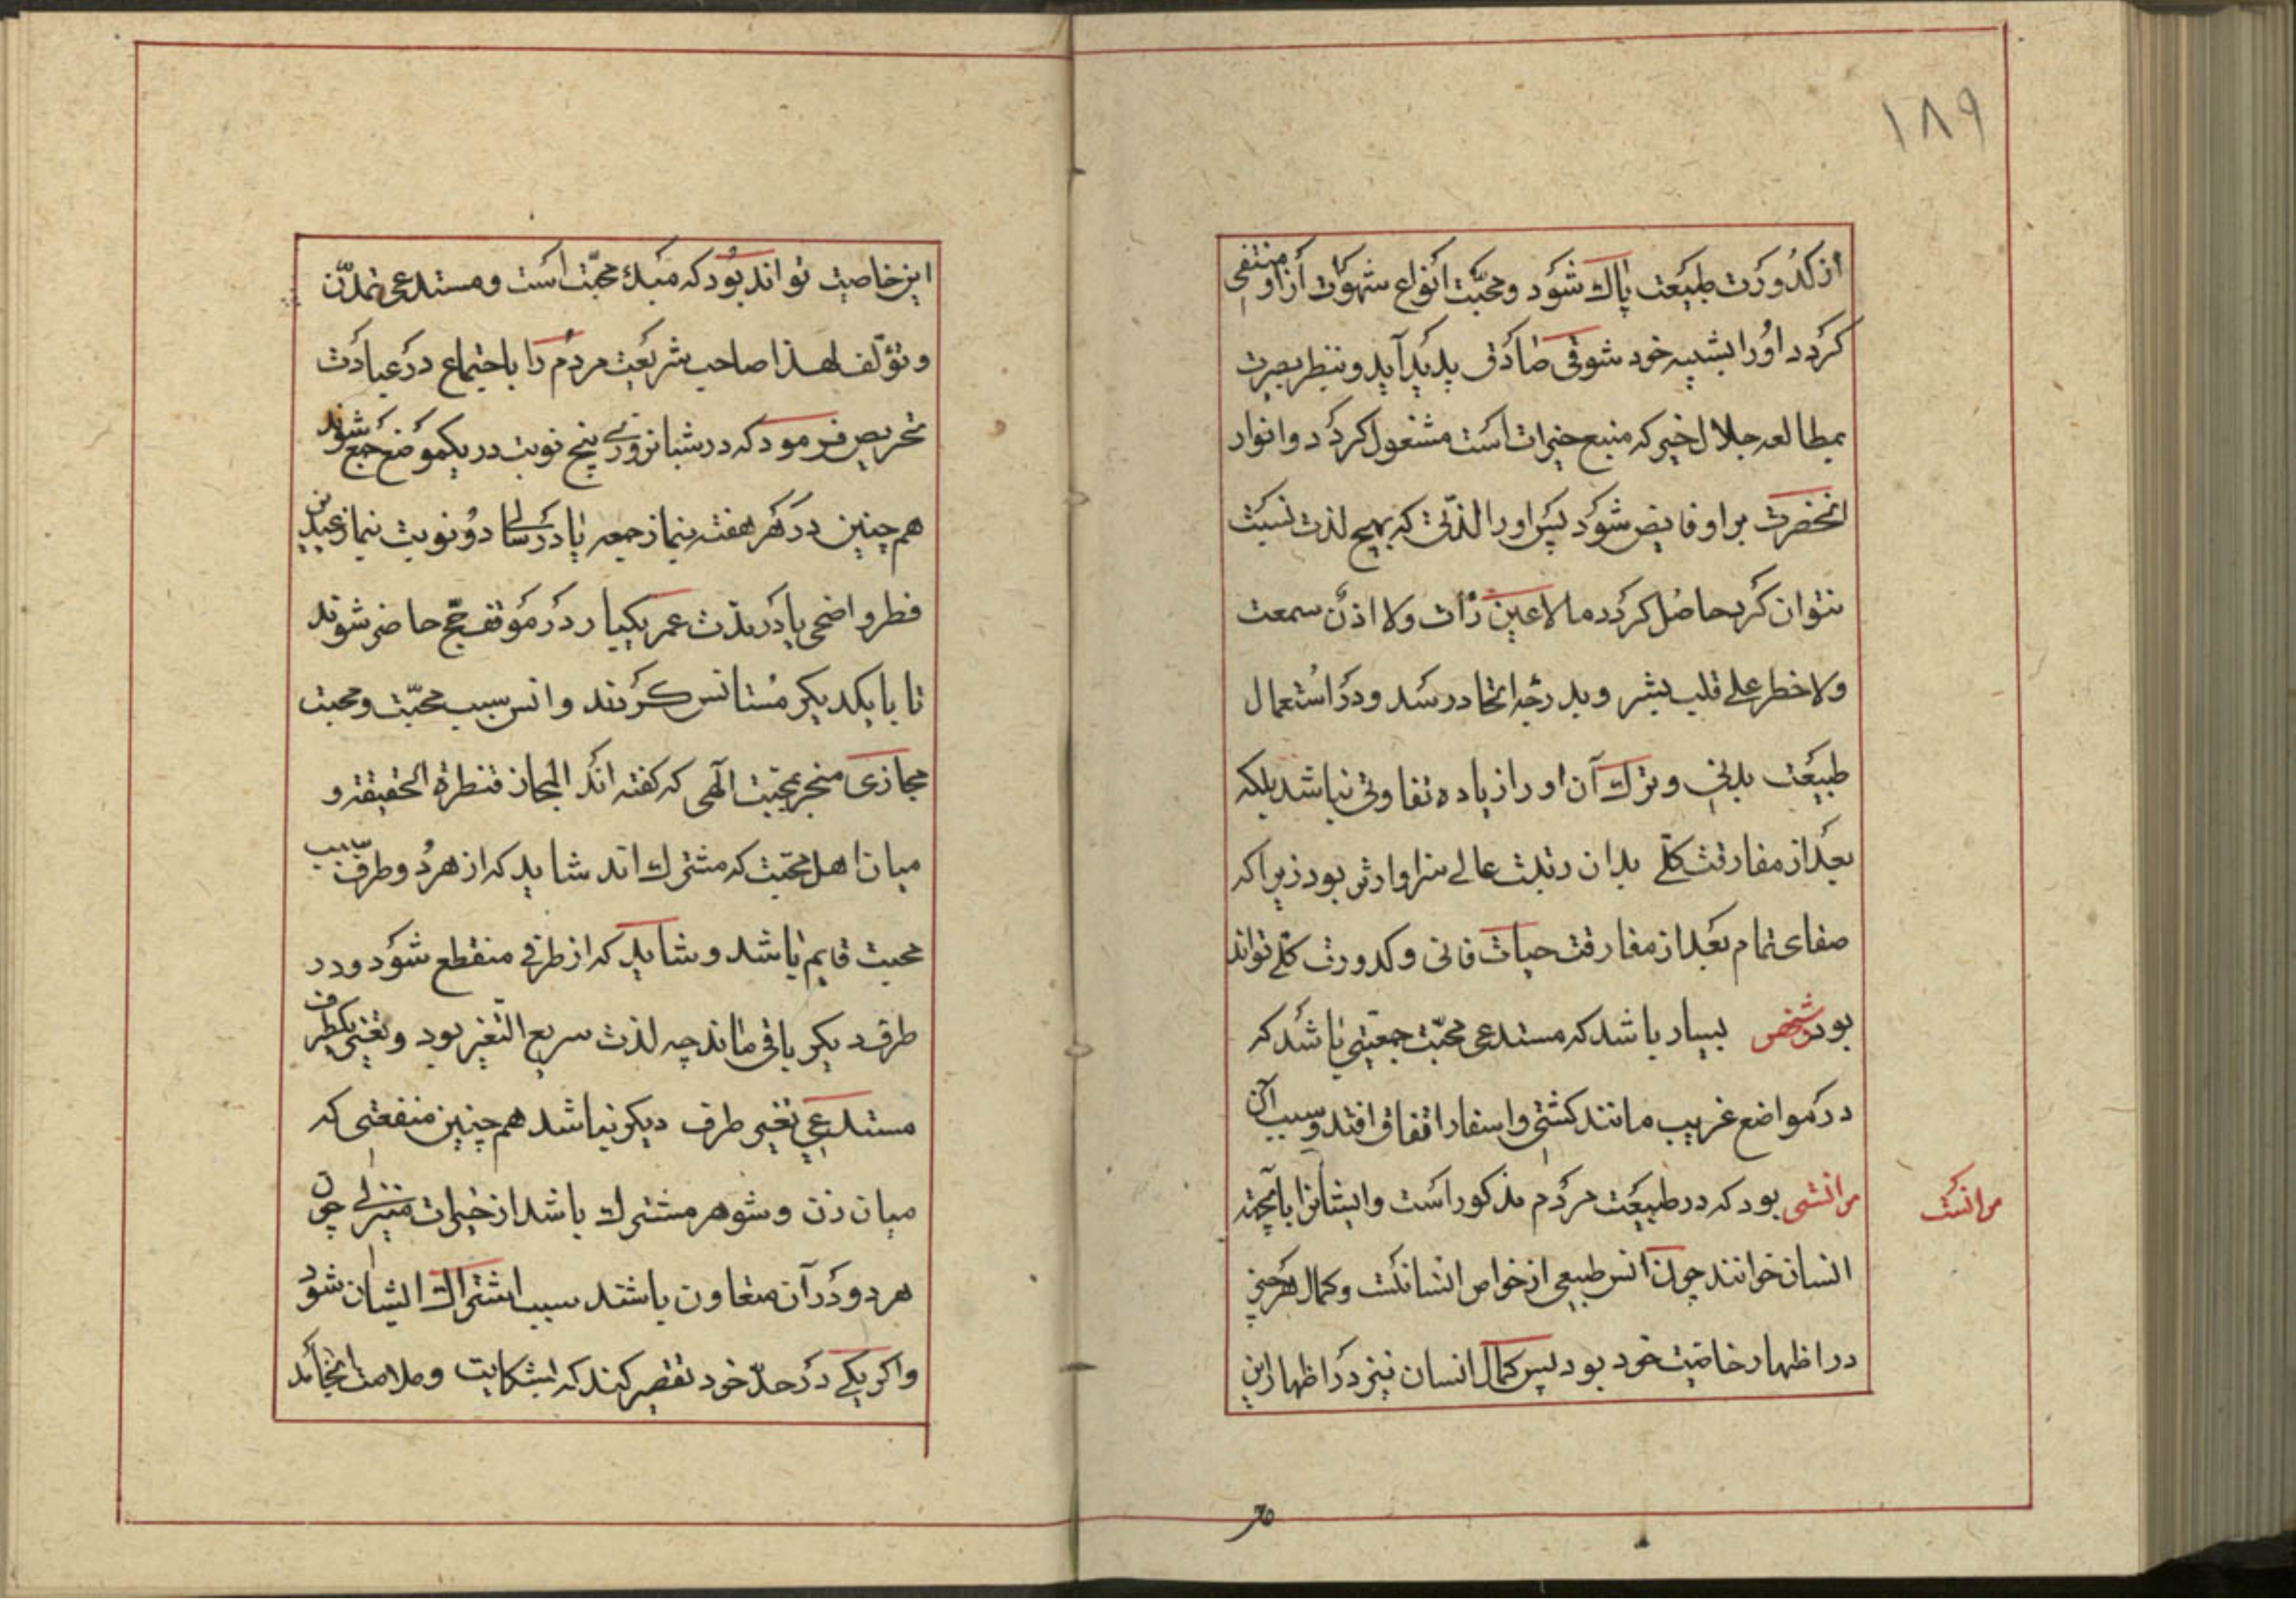 ۱۸۹
از کدورت طبیعت پاك شود و محبّت انواع شهوات ازو منتفی
کردد اورا بشبیه خود شوقی صادق پدید آید و بنظر بصیرت
بمطالعه جلال خیر که منبع خیرات است مشغول کردد و انوار
انحضرت بر او فایض شود پس اورا لذّتی که بهیچ لذت نسبت
نتوان کرد حاصل کردد ما لا عین رأت ولا اذن سمعت
ولا خطر علی قلب بشر و بدرجه اتحاد رسد و در استعمال
طبیعت بدنی و ترك آن اورا زیاده تفاوتی نباشد بلکه
بعد از مفارقت کلّی بدان رتبت عالی سزاوارتر بود زیرا که
صفای تمام بعد از مفارقت حیات فانی و کدورت کلّی تواند
بود شخص بسیار باشد که مستدعی محبّت جمعیّتی باشد که
در مواضع غریب مانند کشتی و اسفار اتفاق افتد و سبب آن
مرانستی بود که در طبیعت مردم مذکور است و ایشانرا بانجهته
مرانست
انسان خوانند چون انس طبیعی از خواص انسانست و کمال هر چیز
در اظهار خاصّیت خود بود پس کمال انسان نیز در اظهار این
این خاصیت تواند بود که مبدء محبّت است و مستدعی تمدّن
و تؤلّف لهذا صاحب شریعت مردم را باجتماع در عبادت
تحریص فرمود که در شبانروزی پنج نوبت در یکموضع جمع شوند
هم چنین در هر هفته بنماز جمعه یا در سالی دو نوبت بنماز عیدین
فطر و اضحی یا در مدّت عمر یکبار در موقف حج حاضر شوند
تا با یکدیکر مستانس کردند و انس سبب محبّت و محبت
مجازی منجر بمحبّت الهی که کفته اند المجاز قنطرة الحقیقة و
میان اهل محبّت که مشترك اند شاید که از هر دو طرف
محبت قایم باشد و شاید که از طرفی منقطع شود و در
طرف دیکر باقی ماند چه لذت سریع التغیّر بود و تغییر یکطرف
مستدعی تغییر طرف دیکر نباشد هم چنین منفعتی که
میان زن و شوهر مشترك باشد از خیرات منزلی چون
هر دو در آن متعاون باشند سبب اشتراك ایشان شود
واکر یکی در حدّ خود تقصیر کند که بشکایت و ملامت انجامد